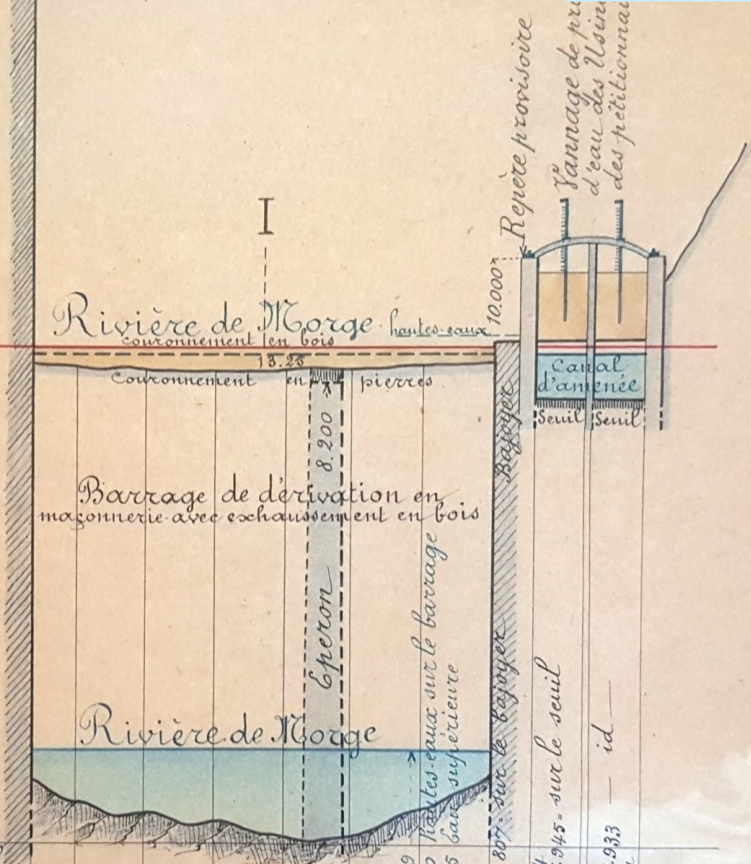 Repère provisoire
Vannage de
d'eau des Usin
des pétitionna
I
10.000
Rivière de Morge
hautes-eaux
couronnement en bois
13.25
Couronnement en pierres
Canal
d'amenée
Seuil Seuil
Bajoyer
8.200
Barrage de dérivation en
maçonnerie avec exhaussement en bois
Eperon
Rivière de Morge
hautes-eaux sur le barrage
Eau supérieure
807 = sur le bajoyer
.945 = sur le seuil
.933 — id —